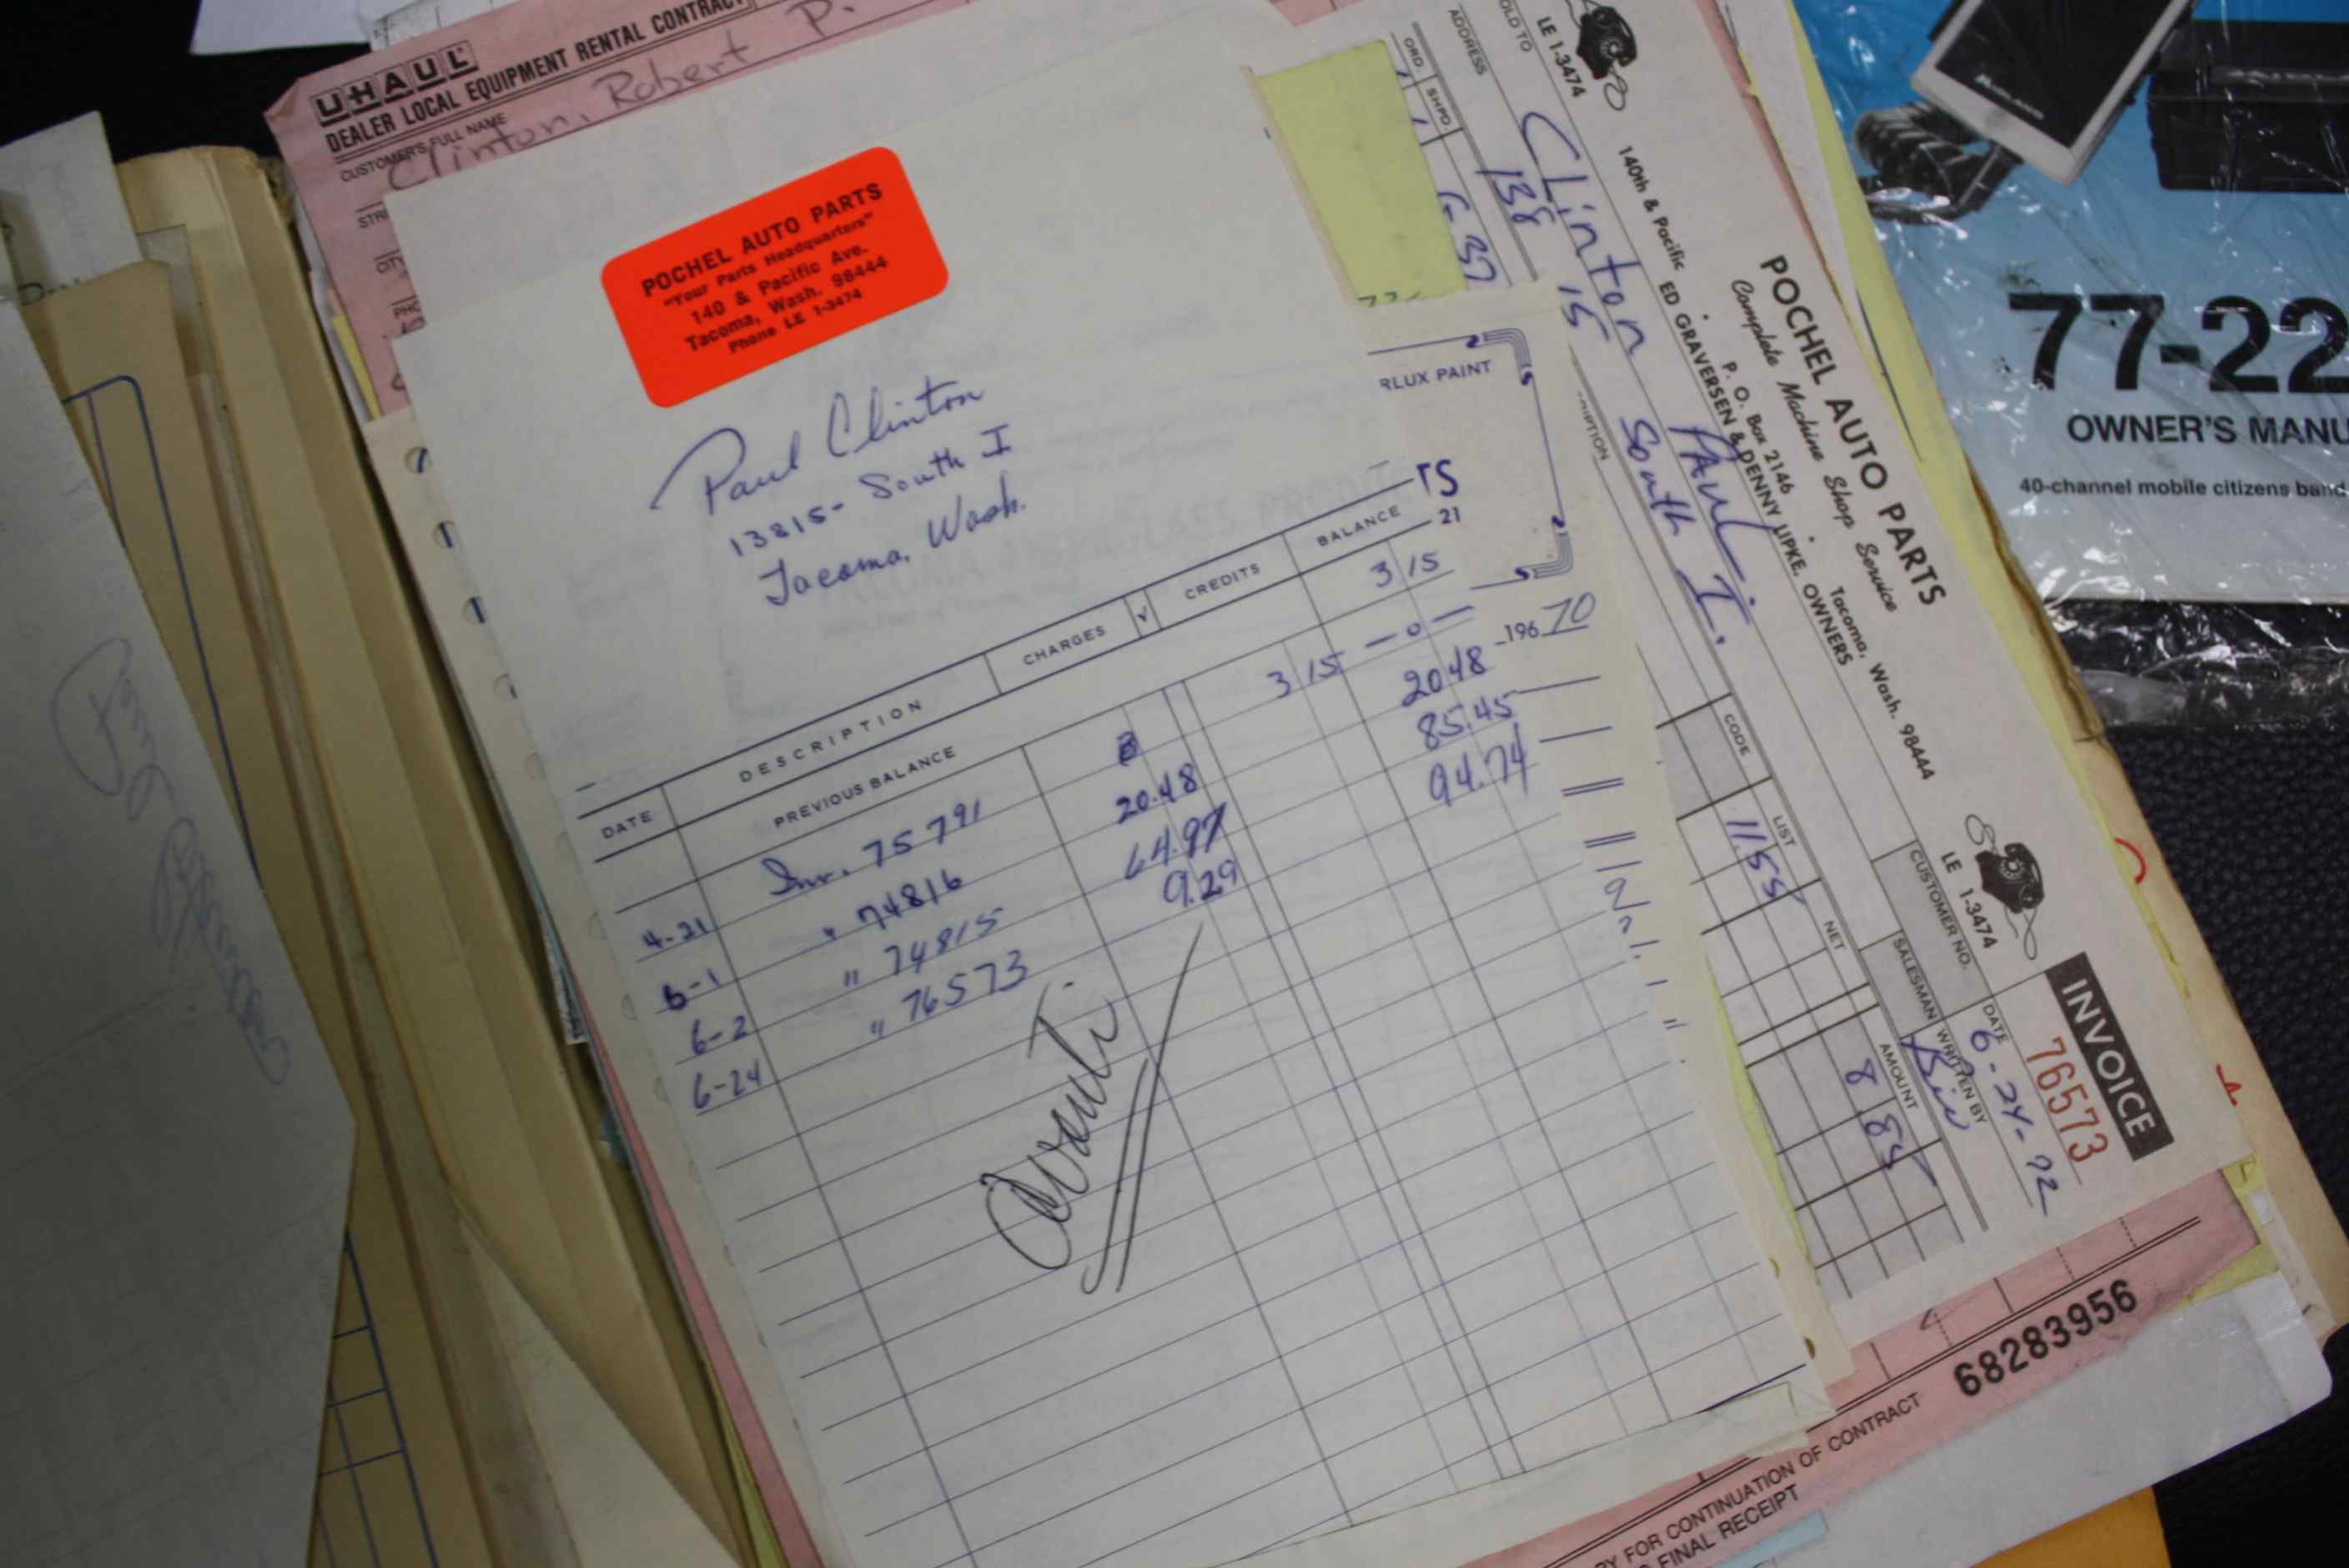 UHAUL
DEALER LOCAL EQUIPMENT RENTAL CONTRACT
CUSTOMER'S FULL NAME
Clinton, Robert P.
POCHEL AUTO PARTS
"Your Parts Headquarters"
140 & Pacific Ave.
Tacoma, Wash. 98444
Phone LE 1-3474
Paul Clinton
13815- South I
Tacoma, Wash.
DATE DESCRIPTION CHARGES √ CREDITS BALANCE
PREVIOUS BALANCE 3 15
4-21 Inv. 75791 3 15 —0—
6-1 " 74816 20.48 20.48
6-2 " 74815 64.97 85.45
6-24 " 76573 9.29 94.74
Avanti
RLUX PAINT
TS
21
196 70
LE 1-3474
POCHEL AUTO PARTS
Complete Machine Shop Service
140th & Pacific • P. O. Box 2146 • Tacoma, Wash. 98444
ED GRAVERSEN & DENNY LIPKE, OWNERS
LE 1-3474
INVOICE
76573
SOLD TO Clinton Paul
ADDRESS 138 15 South I.
CUSTOMER NO.
DATE 6-24-72
SALESMAN WRITTEN BY
ORD SHPD CODE LIST NET AMOUNT
11.55 8 85
77-22
OWNER'S MANU
40-channel mobile citizens band
68283956
RY FOR CONTINUATION OF CONTRACT
FINAL RECEIPT